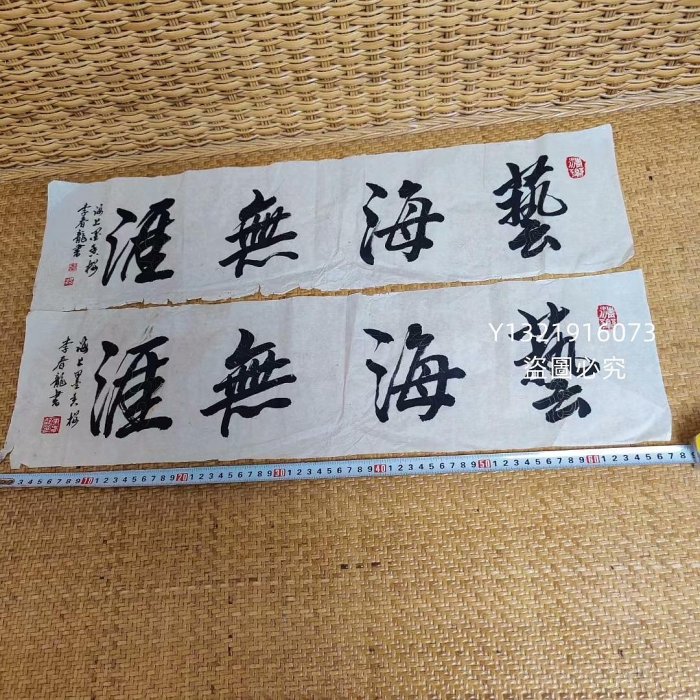 藝海無涯
海上墨香樓
李春龍書
藝海無涯
海上墨香樓
李春龍書
Y1321916073
盜圖必究
3 4 5 6 7 8 9 10 1 2 3 4 5 6 7 8 9 20 1 2 3 4 5 6 7 8 9 30 1 2 3 4 5 6 7 8 9 40 1 2 3 4 5 6 7 8 9 50 1 2 3 4 5 6 7 8 9 60 1 2 3 4 5 6 7 8